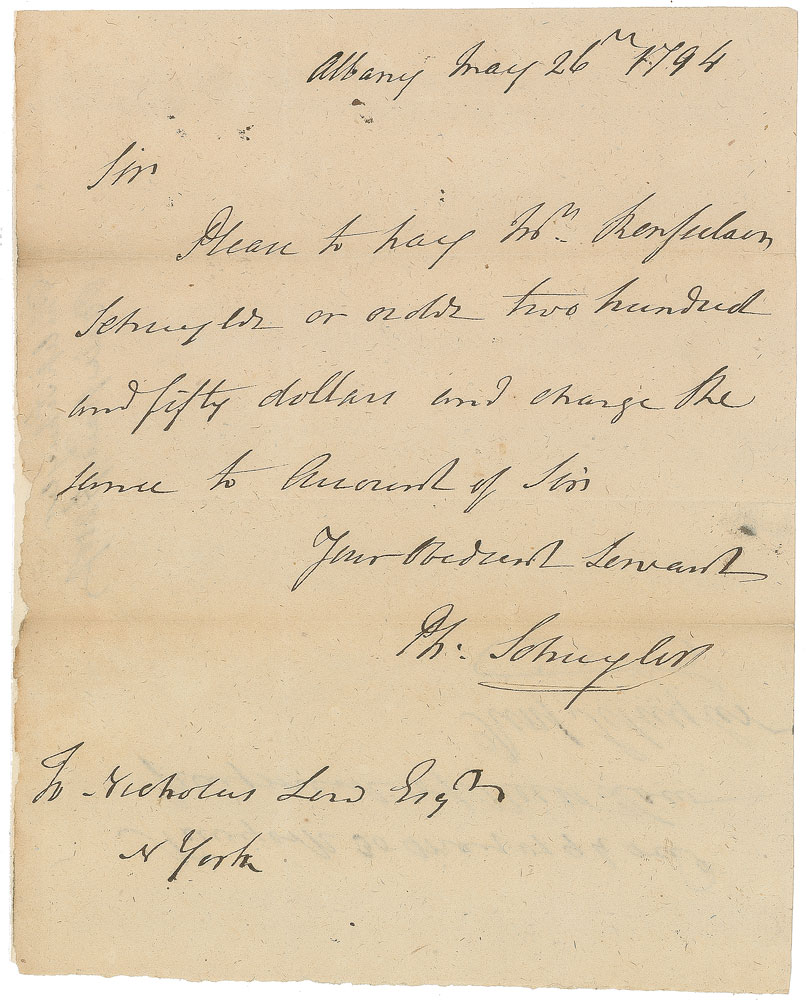 Albany May 26th 1794
Sir
Please to pay Mr. Renselaer
Schuyler or order two hundred
and fifty dollars and charge the
same to Account of Sir
Your Obedient Servant
Ph: Schuyler
To Nicholas Low Esqr
N York